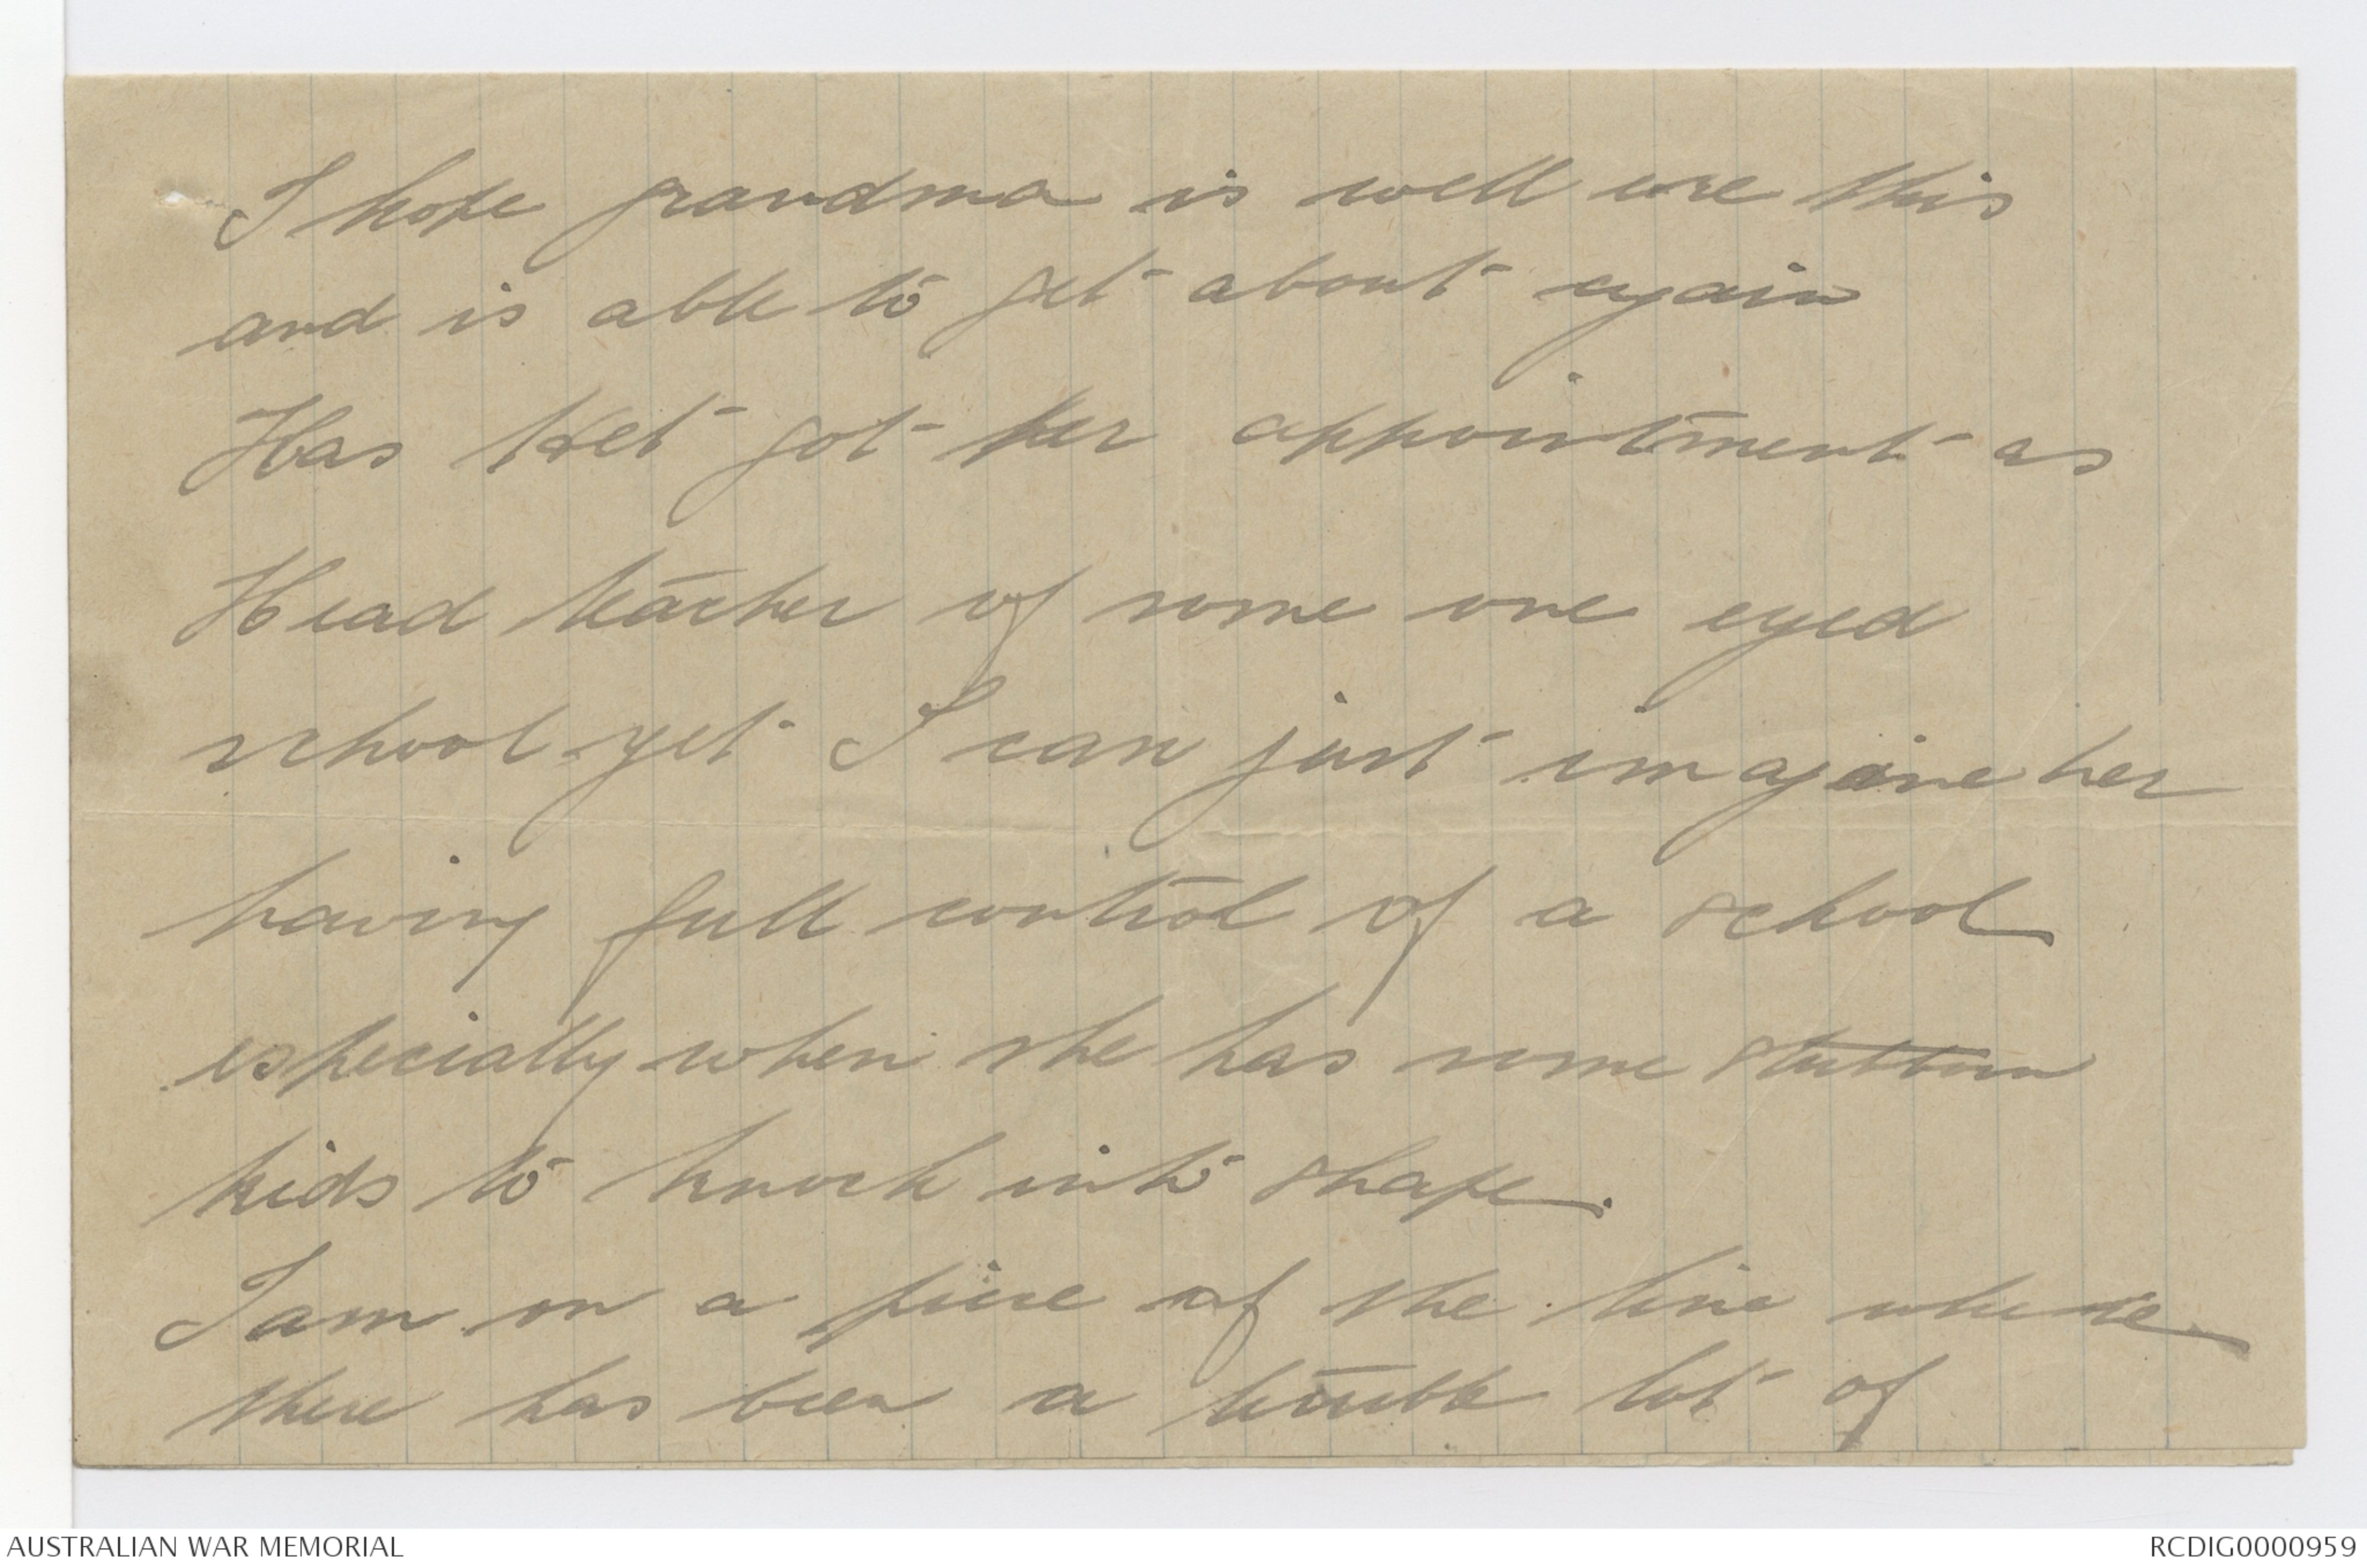 I hope grandma is well ere this
and is able to get about again
Has Het got her appointment as
Head teacher of some one eyed
school yet I can just imagine her
having full control of a school
especially when she has some stubborn
kids to knock into shape.
I am on a piece of the line where
there has been a terrible lot of
AUSTRALIAN WAR MEMORIAL
RCDIG0000959